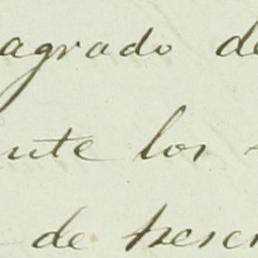 agrado de
ute los
de trescr